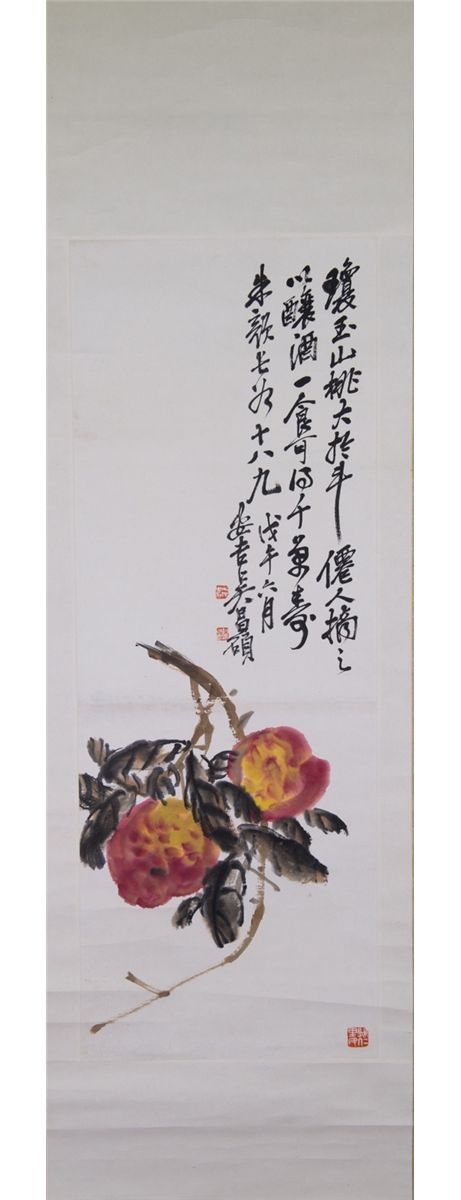 瓊玉山桃大於斗僊人摘之
以釀酒一食可得千萬壽
朱顏長如十八九 戊午六月
安吉吳昌碩